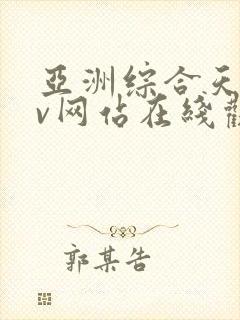 亞洲綜合天
v网佔在綫觀
郭某告